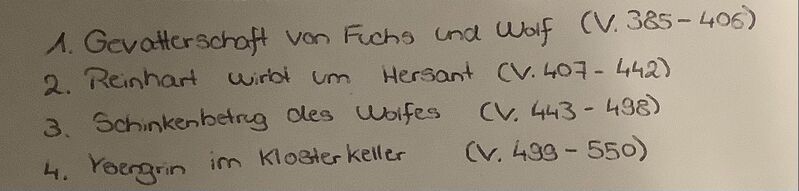 1. Gevatterschaft von Fuchs und Wolf (V. 385-406)
2. Reinhart wirbt um Hersant (V. 407-442)
3. Schinkenbetrug des Wolfes (V. 443-498)
4. Ysengrin im Klosterkeller (V. 499-550)